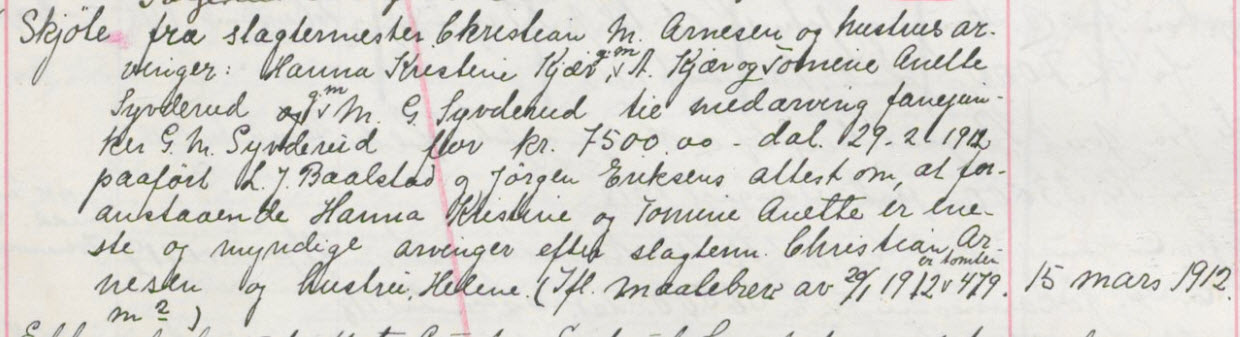 Skjöte fra slagtermester Christian M. Arnesen og hustrus ar-
vinger: Hanna Kristine Kjær g.m. A. Kjær og Tomine Anette
Syvderud og g.m. M. G. Syvderud til medarving fanejun-
ker G. M. Syvderud for kr. 7500.00 - dat. 29-2 1912
paaført L. J. Baalstad og Jørgen Eriksens attest om, at for-
anstaaende Hanna Kristine og Tomine Anette er ene-
ste og myndige arvinger efter slagterm. Christian Ar-
nesen og hustru, Helene. (Ifl. maalebrev av 29/1 1912 er tomten 479. 15 mars 1912.
m²)